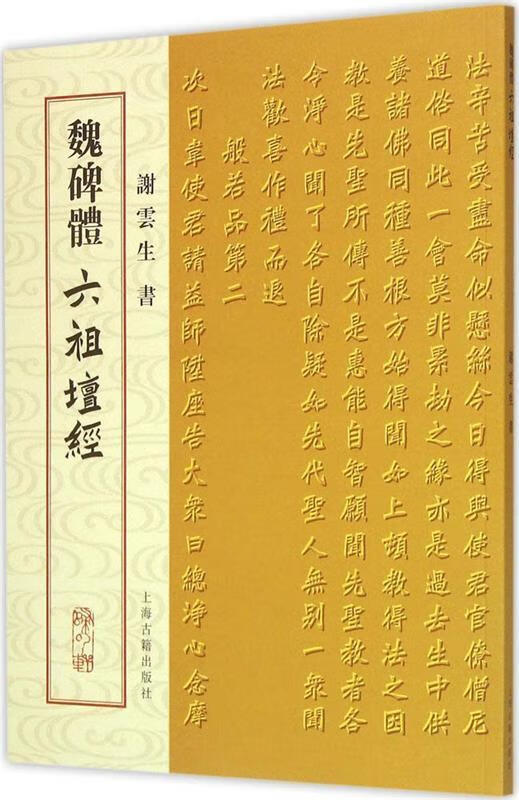 魏碑體 六祖壇經
謝雲生 書
上海古籍出版社
法辛苦受盡命似懸絲今日得與使君官僚僧尼
道俗同此一會莫非累劫之緣亦是過去生中供
養諸佛同種善根方始得聞如上頓教得法之因
教是先聖所傳不是惠能自智願聞先聖教者各
令淨心聞了各自除疑如先代聖人無別一衆聞
法歡喜作禮而退
般若品第二
次日韋使君請益師陞座告大衆曰總淨心念摩
謝雲生 書